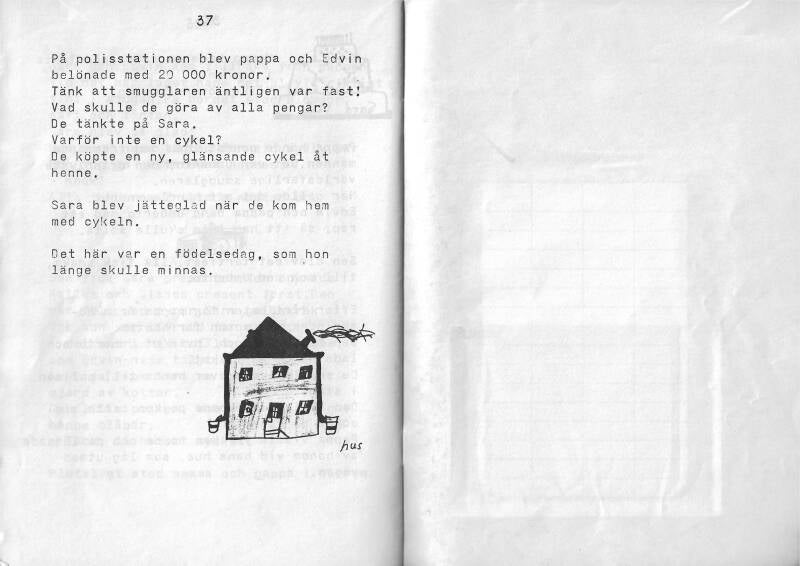 37
På polisstationen blev pappa och Edvin
belönade med 20 000 kronor.
Tänk att smugglaren äntligen var fast!
Vad skulle de göra av alla pengar?
De tänkte på Sara.
Varför inte en cykel?
De köpte en ny, glänsande cykel åt
henne.
Sara blev jätteglad när de kom hem
med cykeln.
Det här var en födelsedag, som hon
länge skulle minnas.
hus